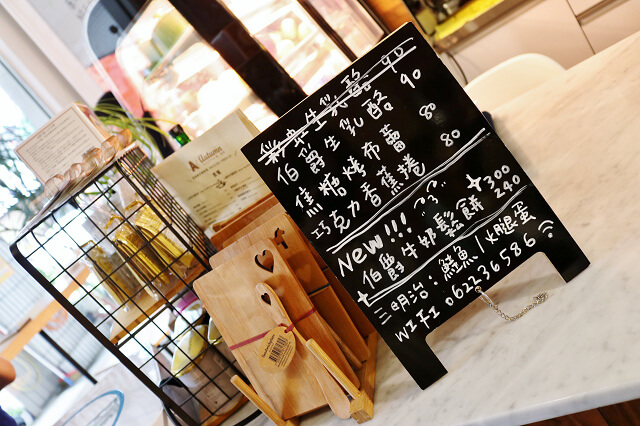 Autumn
伯爵生乳酪 90
焦糖烤布蕾 80
巧克力香蕉捲 80
NEW!!!
伯爵牛奶鬆餅 200
240
三明治：鮭魚/火腿蛋
WIFI 062236586